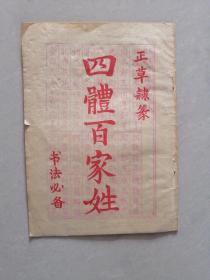 正草隸篆
四體百家姓
书法必备